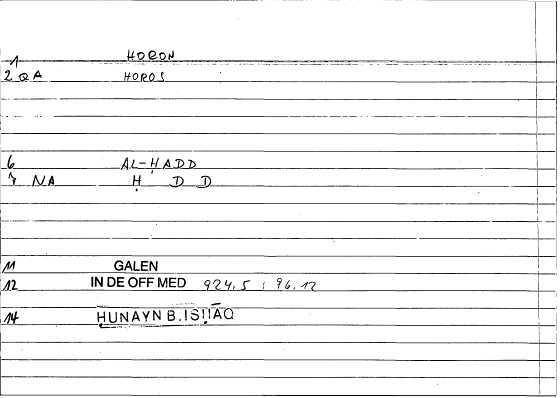 1 HORON
2 QA HOROS
6 AL-ḤADD
7 NA Ḥ D D
11 GALEN
12 IN DE OFF MED 924,5 : 96.12
14 ḤUNAYN B. ISḤĀQ